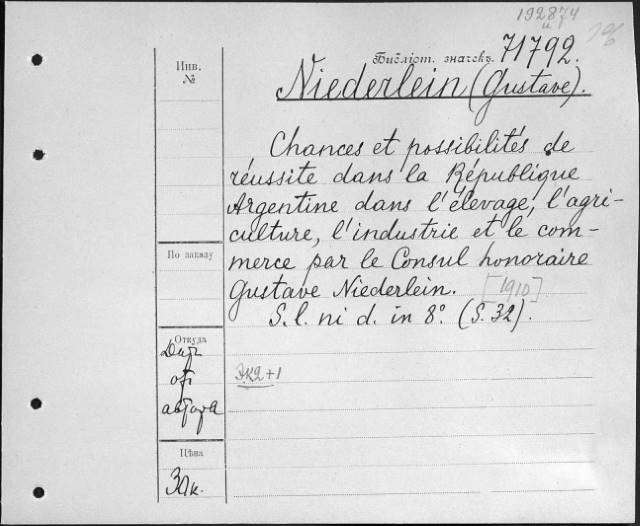 192874
Инв.
№
Библіот. значекъ. 71792.
Niederlein, (Gustave).
Chances et possibilités de
réussite dans la République
Argentine dans l'élevage, l'agri-
culture, l'industrie et le com-
merce par le Consul honoraire
Gustave Niederlein. [1910]
S. l. ni d. in 8°. (S. 32).
По заказу
Откуда
Дар
от
автора
ЭК2+1
Цѣна